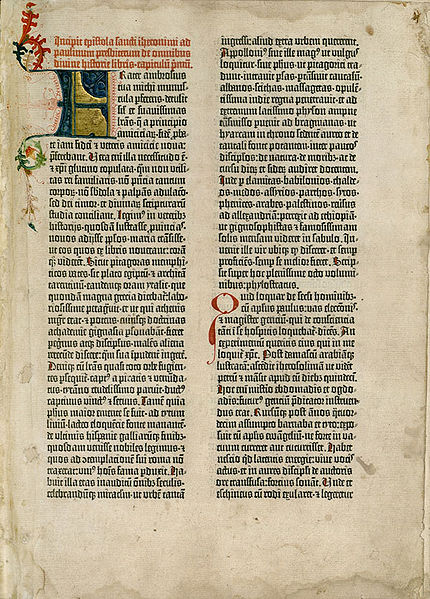 Incipit epistola sancti iheronimi ad
paulinum presbiterum de omnibus
divine historie libris. capitulum primū.
Frater ambrosius
tua michi munus-
cula pferens. detulit
sił et suavissimas
lrās. q̄ a principio
amicicia℞. fidē pba-
te iam fidei et veteris amicicie nova:
pferebant. Vera em̄ illa necessitudo ē.
et xp̄i glutino copulata. qm̄ non utili-
tas rei familiaris. nō pn̄tia tantum
corpo℞. nō s̄bdola et palpās adulacō.
sed dei timor. et divina℞ scriptura℞
studia conciliant. Legim⁹ in veterib⁹
historijs. quosdā lustrasse pvincias.
novos adijsse pplos. maria trāsisse.
ut eos quos ex libris noverant: corā
q̄ viderēt. Sicut pitagoras memphi-
ticos vates. sic plato egiptū. et archita
tarentinū. eandemq̄ oram ytalie. que
quondā magna grecia dicebat̄. labo-
riosissime peragravit. et ut qui athenis
mgr̄ erat. et potens. cuiusq̄ doctrinas
achademie gignasia psonabāt. fieret
pegrinus atq̄ discipulus. malēs aliena
verecūde discere: q̄m sua īpudent̄ ingere.
Deniq̄ cū lrās quasi toto orbe fugien-
tes psequit̄. capt⁹ a piratis et venūda-
tus. tyranno crudelissimo paruit. duct⁹
captivus vinct⁹ et servus. Tamē quia
phus maior emente se fuit. ad tytum
livium. lacteo eloquētie fonte manantē.
de ultimis hispanie gallia℞q̄ finib⁹.
quosdam venisse nobiles legimus. et
quos ad ɔtemplacionē sui roma nō
traxerat: uni⁹ hoīs fama pduxit. Ha-
buit illa etas inauditū oīnib⁹ seculis.
celebrandūq̄ miraclm. ut urbē tantā
ingressi: aliud extra urbem quererent.
Appolloni⁹ sive ille mag⁹ ut vulgus
loquitur. sive phus ut pitagorici tra-
dunt. intravit psas. ptrāsivit caucasū.
albanos. scithas. massagetas. opulē-
tissima indie regna penetravit. et ad
extremum latissimo physon ampne
trāsmisso puenit ad bragmanas. ut
hyarcam in throno sedentē aureo et de
tantali fonte potantem. inter paucos
discipulos: de natura. de moribus ac de
cursu dierū et sideʀ audiret docentem.
Inde p elamitas. babilonios. chalde-
os. medos. assyrios. parthos. syros.
phenices. arabes. palestinos. reversus
ad allexandriā: perrexit ad ethiopiā.
ut gignosophistas et famosissimam
solis mensam videret in sabulo. In-
venit ille vir ubiq̄ qd disceret. et semp
proficiēs. semp se melior fieret. Scrip-
sit super hoc plenissime octo volumi-
nibus: phylostratus.
Quid loquar de secli hominib⁹.
cū apłus paulus: vas elecconis.
et magister gencium. qui de consciencia
tāti ī se hospitis loquebat̄. dicēs. An
experimentū queritis eius qui in me
loquit̄ xp̄c. Post damascū arabiāq̄
lustratā: ascēdit iherosolimā ut videt
petrū et māsit apud eū dieb⁹ quindeci.
Hoc em̄ misterio ebdomadis et ogdo-
adis: futur⁹ genciū p̄dicator instruen-
dus erat. Rursūq̄ post ānos q̄tuor-
decim assumpto barnaba et tyto: expo-
suit cū aplis evāgeliū. ne forte in va-
cuum curreret aut cucurrisset. Habet
nescio qd latentis energie: vive vocis
actus. et in aures discipli de auctoris
ore transfusa: forcius sonat. Unde et
eschineus cū rodi exularet. et legeretur